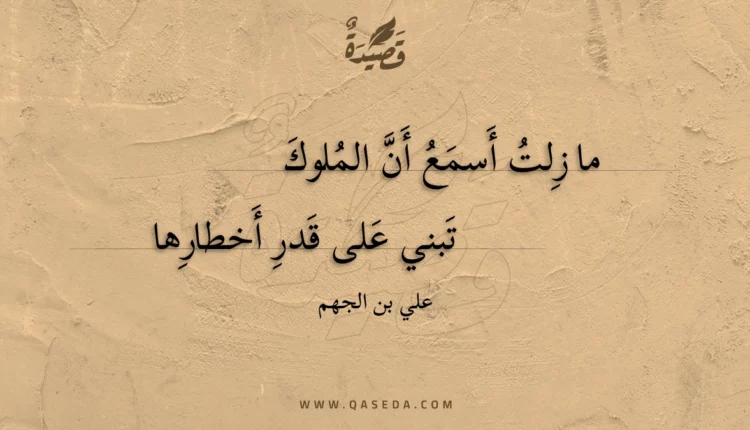 قَصِيْدَةٌ
ما زِلتُ أَسمَعُ أَنَّ المُلوكَ
تَبني عَلى قَدرِ أَخطارِها
علي بن الجهم
WWW.QASEDA.COM